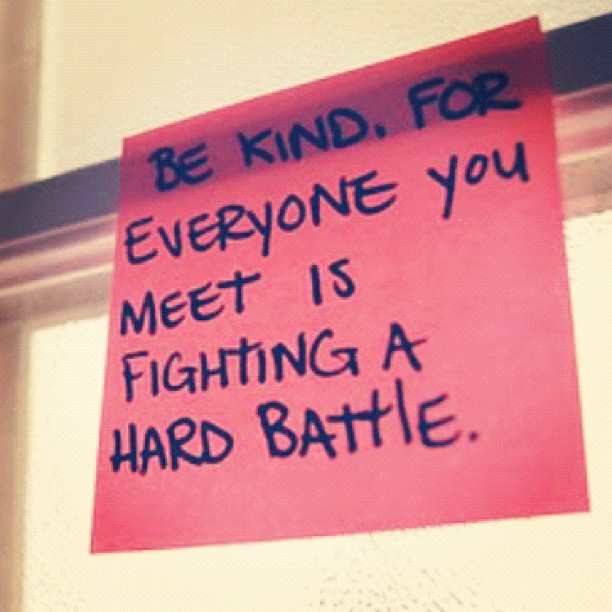 BE KIND. FOR
EVERYONE YOU
MEET IS
FIGHTING A
HARD BATTlE.